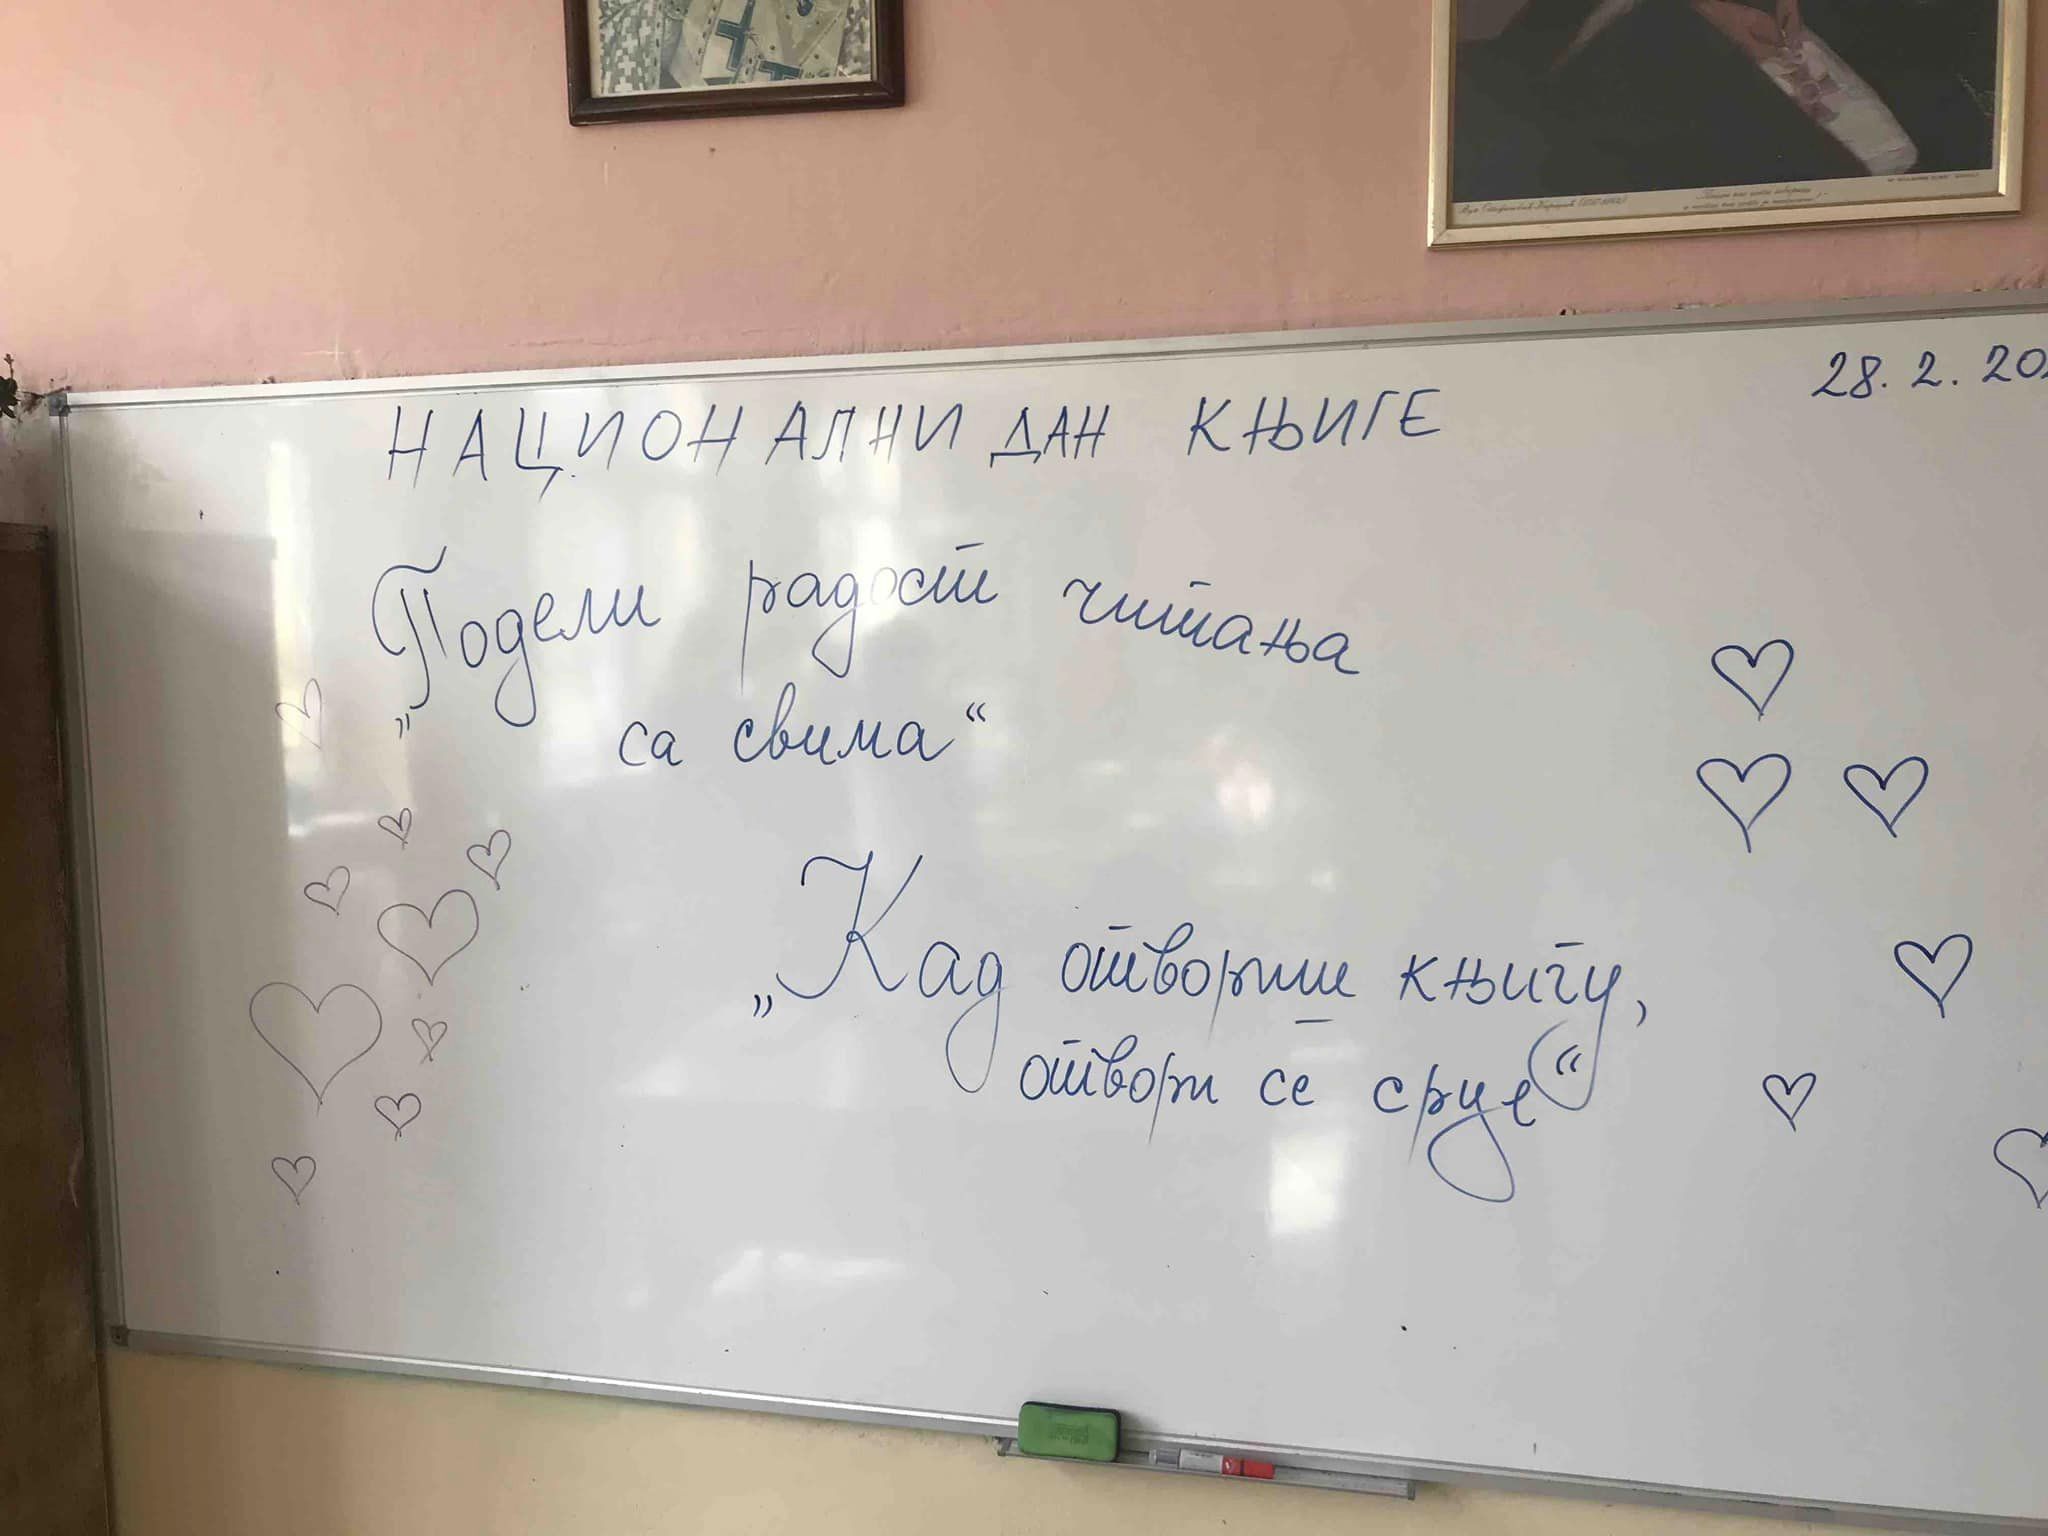 Вук Стефановић Караџић
28. 2. 20
НАЦИОНАЛНИ ДАН КЊИГЕ
„Подели радост читања
са свима“
„Кад отвориш књигу,
отвори се срце“